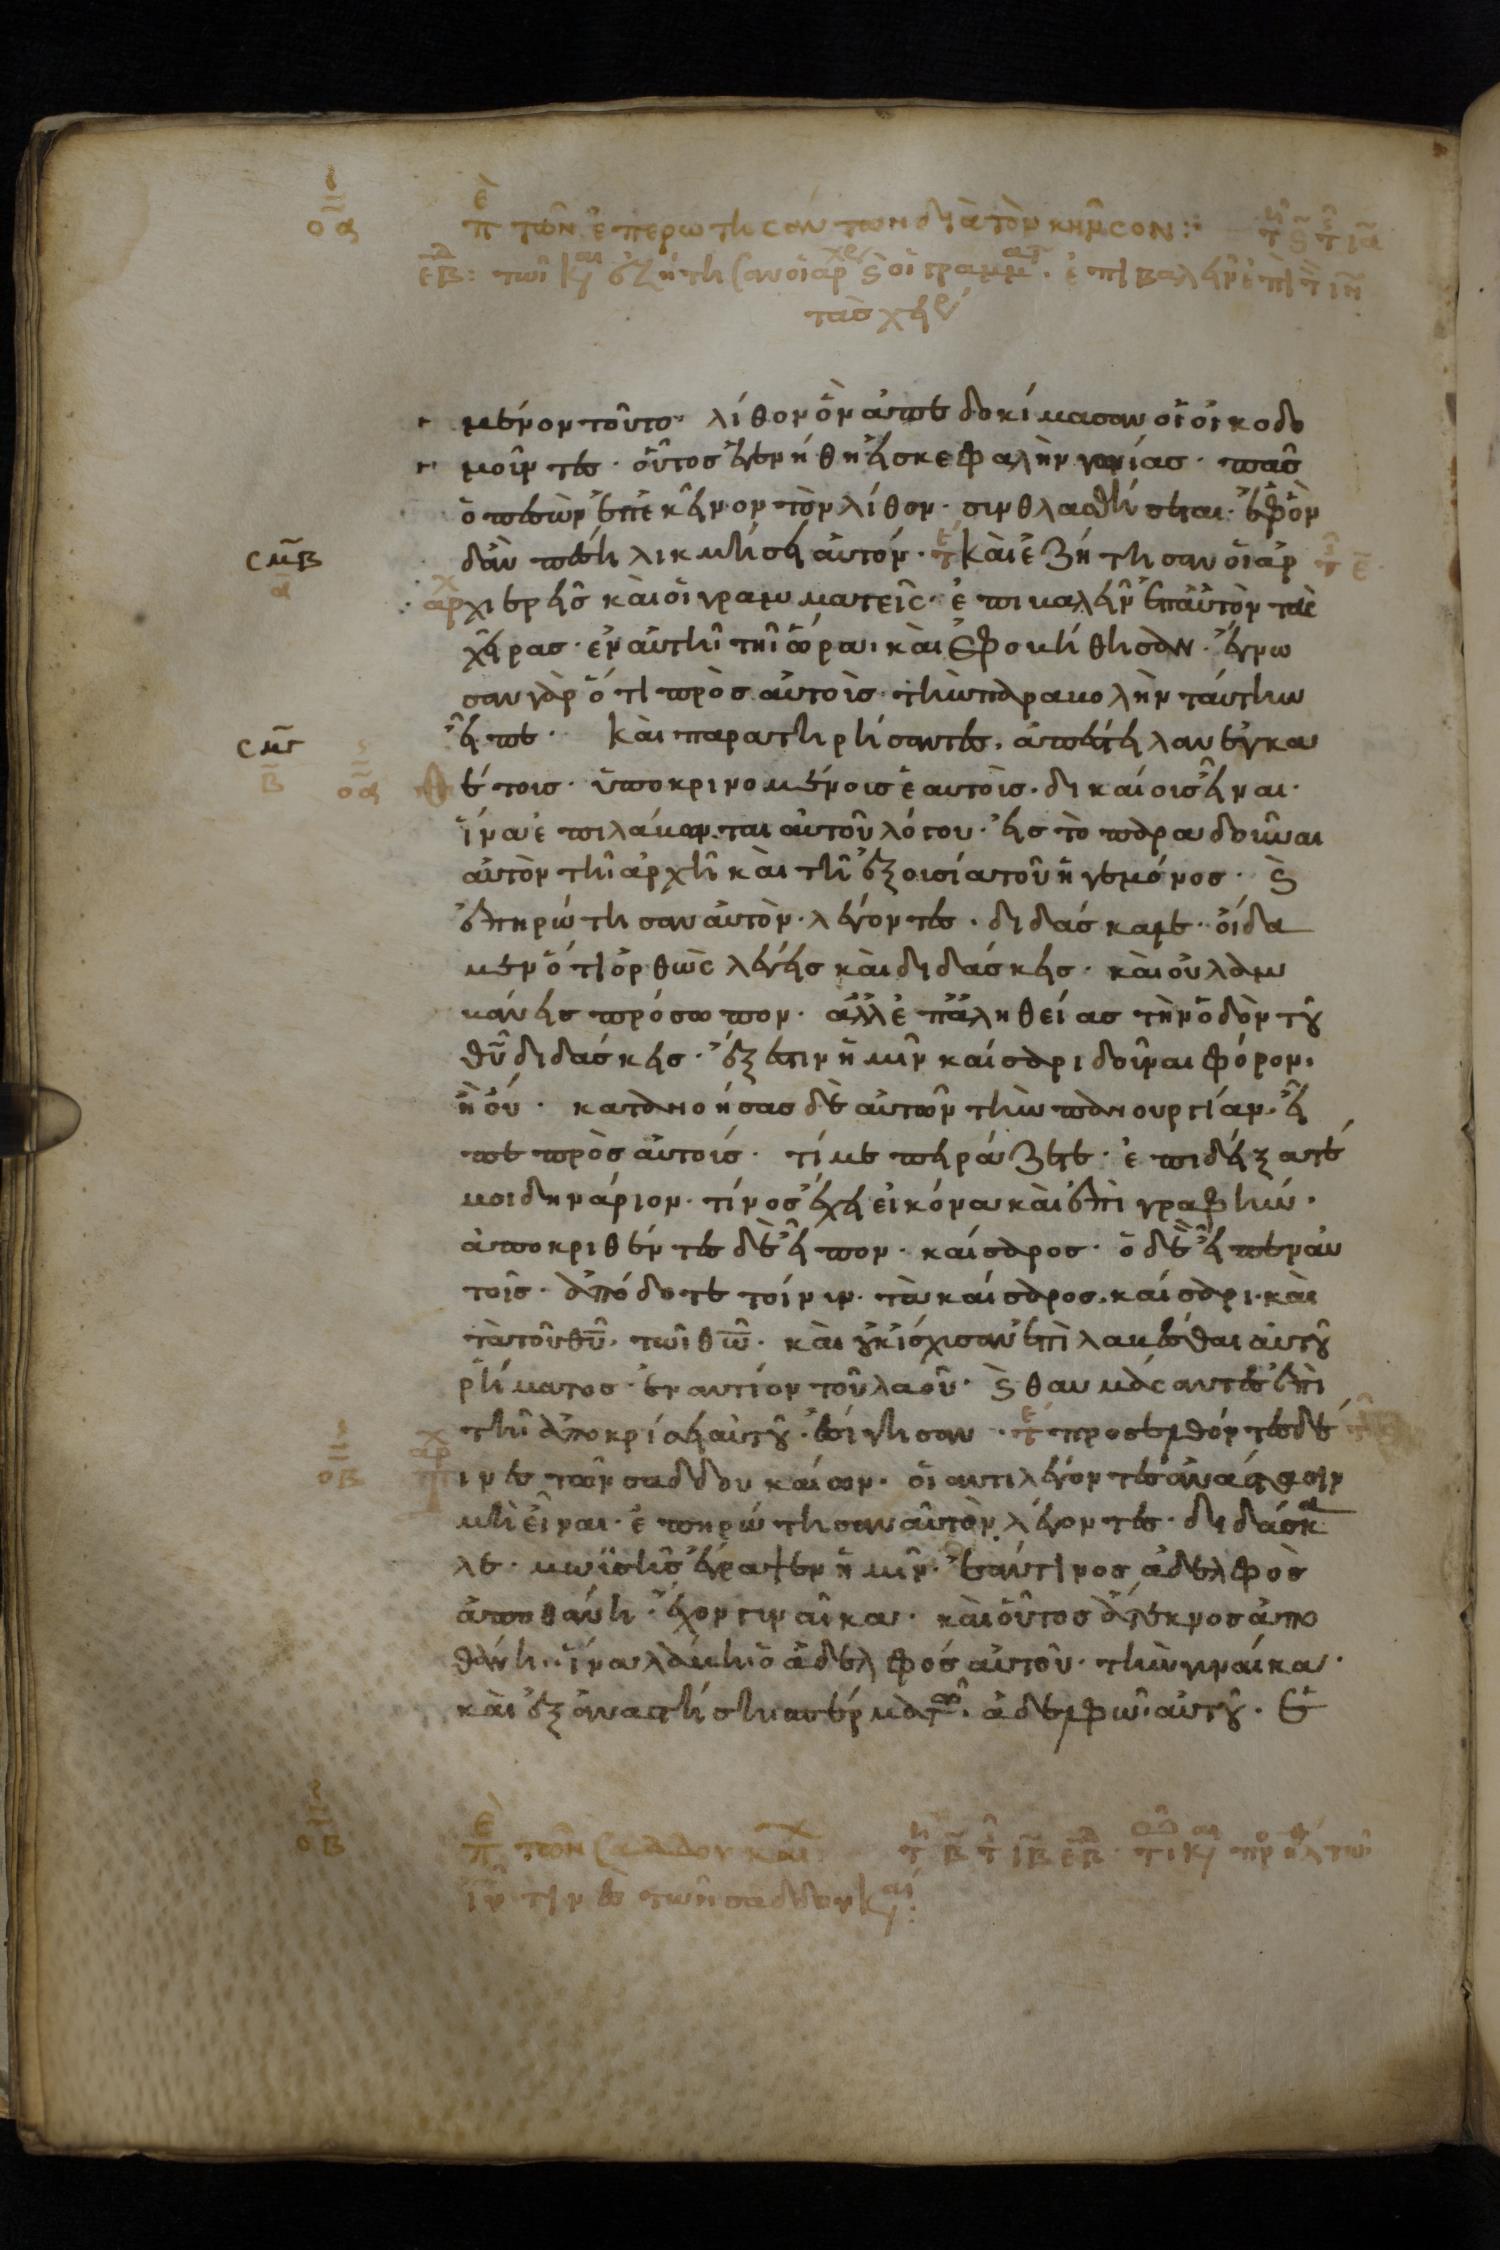 οα
περὶ τῶν ἐπερωτησάντων διὰ τὸν κῆνσον :·
τῶι και ἐζήτησαν οἱ ἀρχ ϗ οἱ γραμματ · ἐπιβαλεῖν ἐπὶ τ ιν
τὰσ χει
μένον τοῦτο · λίθον ὃν ἀπεδοκίμασαν οἱ οἰκοδο
μοῦντες · οὗτοσ ἐγενήθη εἰσ κεφαλὴν γωνίασ · πᾶσ
ὁ πεσὼν ἐπ ἐκεῖνον τὸν λίθον · συνθλασθήσεται · ἐφ ὃν
δἂν πέση λικμήσει αὐτόν · τε καὶ ἐζήτησαν οἱ ἀρ
σμβ
α
ἀρχ χιερεῖσ καὶ οἱ γραμματεῖς · ἐπιβαλεῖν ἐπ αὐτὸν τὰσ
χεῖρασ · ἐν αὐτῆ τῆ ὥρα · καὶ ἐφοβήθησαν · ἔγνω
σαν γὰρ ὅτι πρὸσ αὐτοὺσ τὴν παραβολὴν ταύτην
εἶπε · καὶ παρατηρήσαντεσ · ἀπέστειλαν ἐγκα
σμγ
β
οα
θέτουσ · ὑποκρινομένουσ ἑαυτοὺσ · δικαίουσ εἶναι ·
ἵνα ἐπιλάβωνται αὐτοῦ λόγου · εἰσ τὸ παραδοῦναι
αὐτὸν τῆ ἀρχῆ καὶ τῆ ἐξουσία τοῦ ἡγεμόνοσ · ϗ
ἐπηρώτησαν αὐτὸν · λέγοντεσ · διδάσκαλε · οἴδα
μεν ὅτι ὀρθῶς λέγεισ καὶ διδάσκεισ · καὶ οὐ λαμ
βάνεισ πρόσωπον · ἀλλ ἐπ ἀληθείασ τὴν ὁδὸν τοῦ
θῦ διδάσκεισ · ἔξεστιν ἡμῖν καίσαρι δοῦναι φόρον ·
ἢ οὔ · κατανοήσασ δὲ αὐτῶν τὴν πανουργίαν · εἶ
πε πρὸσ αὐτούσ · τί με πειράζετε · ἐπιδείξατέ
μοι δηνάριον · τίνοσ ἔχει εἰκόνα καὶ ἐπιγραφήν ·
ἀποκριθέντεσ δὲ εἶπον · καίσαροσ · ὁ δὲ εἶπεν αὐ
τοῖσ · ἀπόδοτε τοίνυν · τὰ καίσαροσ · καίσαρι · καὶ
τὰ τοῦ θῦ · τῶι θῶ · καὶ οὐκ ἴσχυσαν ἐπιλαβέσθαι αὐτοῦ
ῥήματοσ · ἐναντίον τοῦ λαοῦ · ϗ θαυμάσαντεσ ἐπὶ
τῆ ἀποκρίσει αὐτοῦ · ἐσίγησαν · τε προσελθόντεσ δέ
οβ
τινεσ τῶν σαδδουκαίων · οἱ ἀντιλέγοντεσ ἀνάστασιν
μὴ εἶναι · ἐπηρώτησαν αὐτὸν λέγοντεσ · διδάσκα
λε · μωϋσῆσ ἔγραψεν ἡμῖν · ἐάν τινοσ ἀδελφὸσ
ἀποθάνη · ἔχων γυναῖκα · καὶ οὗτοσ ἄτεκνοσ ἀπο
θάνη · ἵνα λάβη ὁ ἀδελφόσ αὐτοῦ · τὴν γυναίκα ·
καὶ ἐξαναστήση σπέρμα τῶ · ἀδελφῶ · αὐτοῦ · ἑ
οβ
περὶ τῶν σαδδουκαι
τιν εσ τῶν σαδδουκαι :